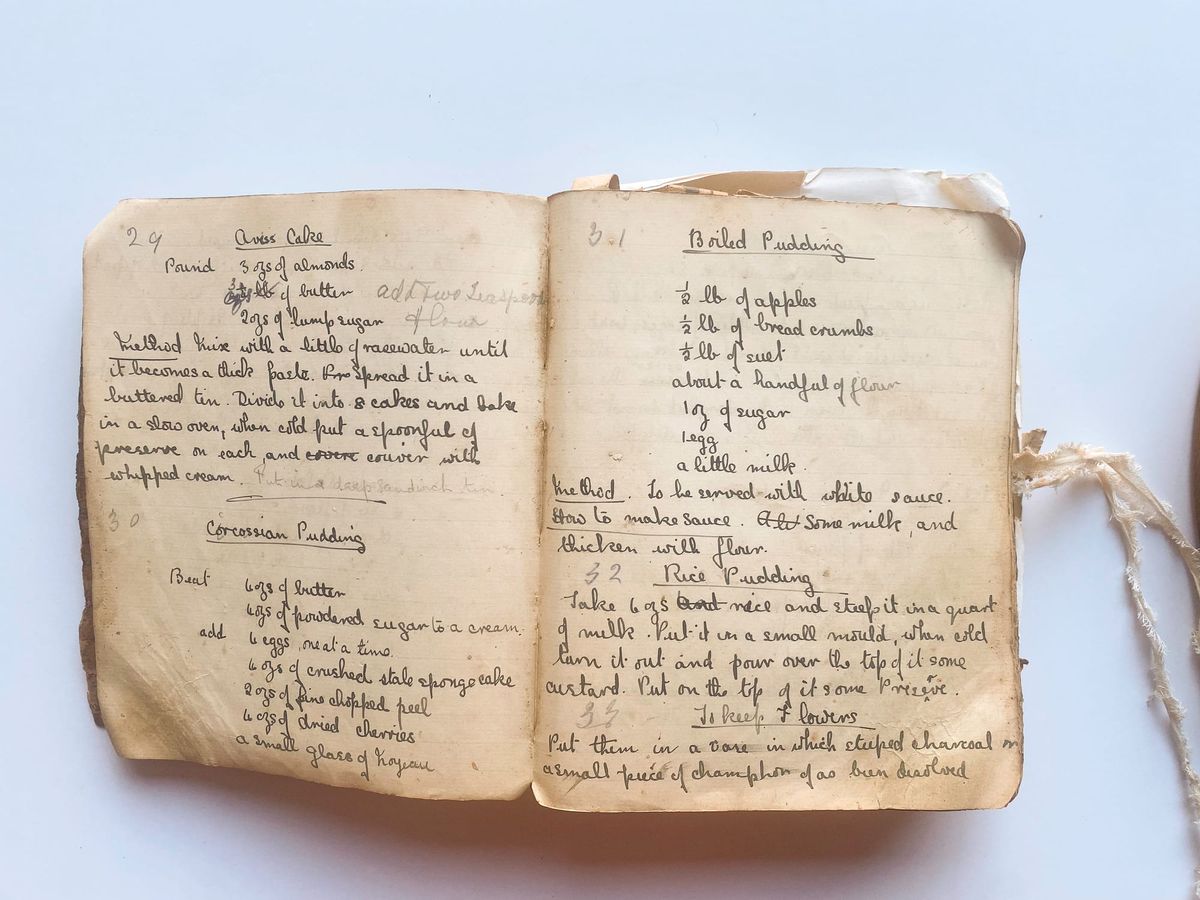 29 Aviss Cake
Pound 3 ozs of almonds.
of butter add Two Teaspoons
2ozs of lump sugar flour
Method Mix with a little of racewater until
it becomes a thick paste. Spread it in a
buttered tin. Divide it into 8 cakes and bake
in a slow oven, when cold put a spoonful of
preserve on each, and covere couver with
whipped cream. Put in a deep sandwich tin.
30
Corcossian Pudding
Beat 4ozs of butter
4ozs of powdered sugar to a cream.
add 4 eggs, one at a time.
4 ozs of crushed stale sponge cake
2ozs of fine chopped peel
4 ozs of dried cherries
a small glass of Noyeau
31 Boiled Pudding
½ lb of apples
½ lb of bread crumbs
½ lb of suet
about a handful of flour
1 oz of sugar
1 egg
a little milk.
Method. To be served with white sauce.
How to make sauce. Some milk, and
thicken with flour.
32 Rice Pudding
Take 6 ozs and rice and steep it in a quart
of milk. Put it in a small mould, when cold
turn it out and pour over the top of it some
custard. Put on the top of it some Preserve.
33 To keep Flowers
Put them in a vase in which steeped charcoal or
a small piece of champhor of as been disolved